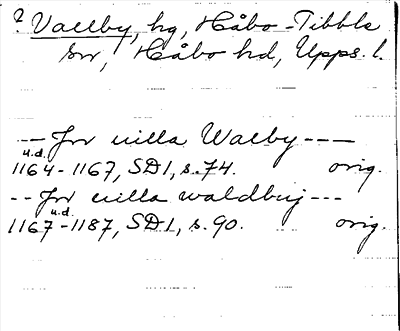 ? Vallby, hg, Håbo-Tibble
sn, Håbo hd, Upps. l.
--- Jn uilla Walby ---
u.d.
1164-1167, SD1, s. 74. orig.
-- Jn uilla waldbuj ---
u.d.
1167-1187, SD1, s. 90. orig.